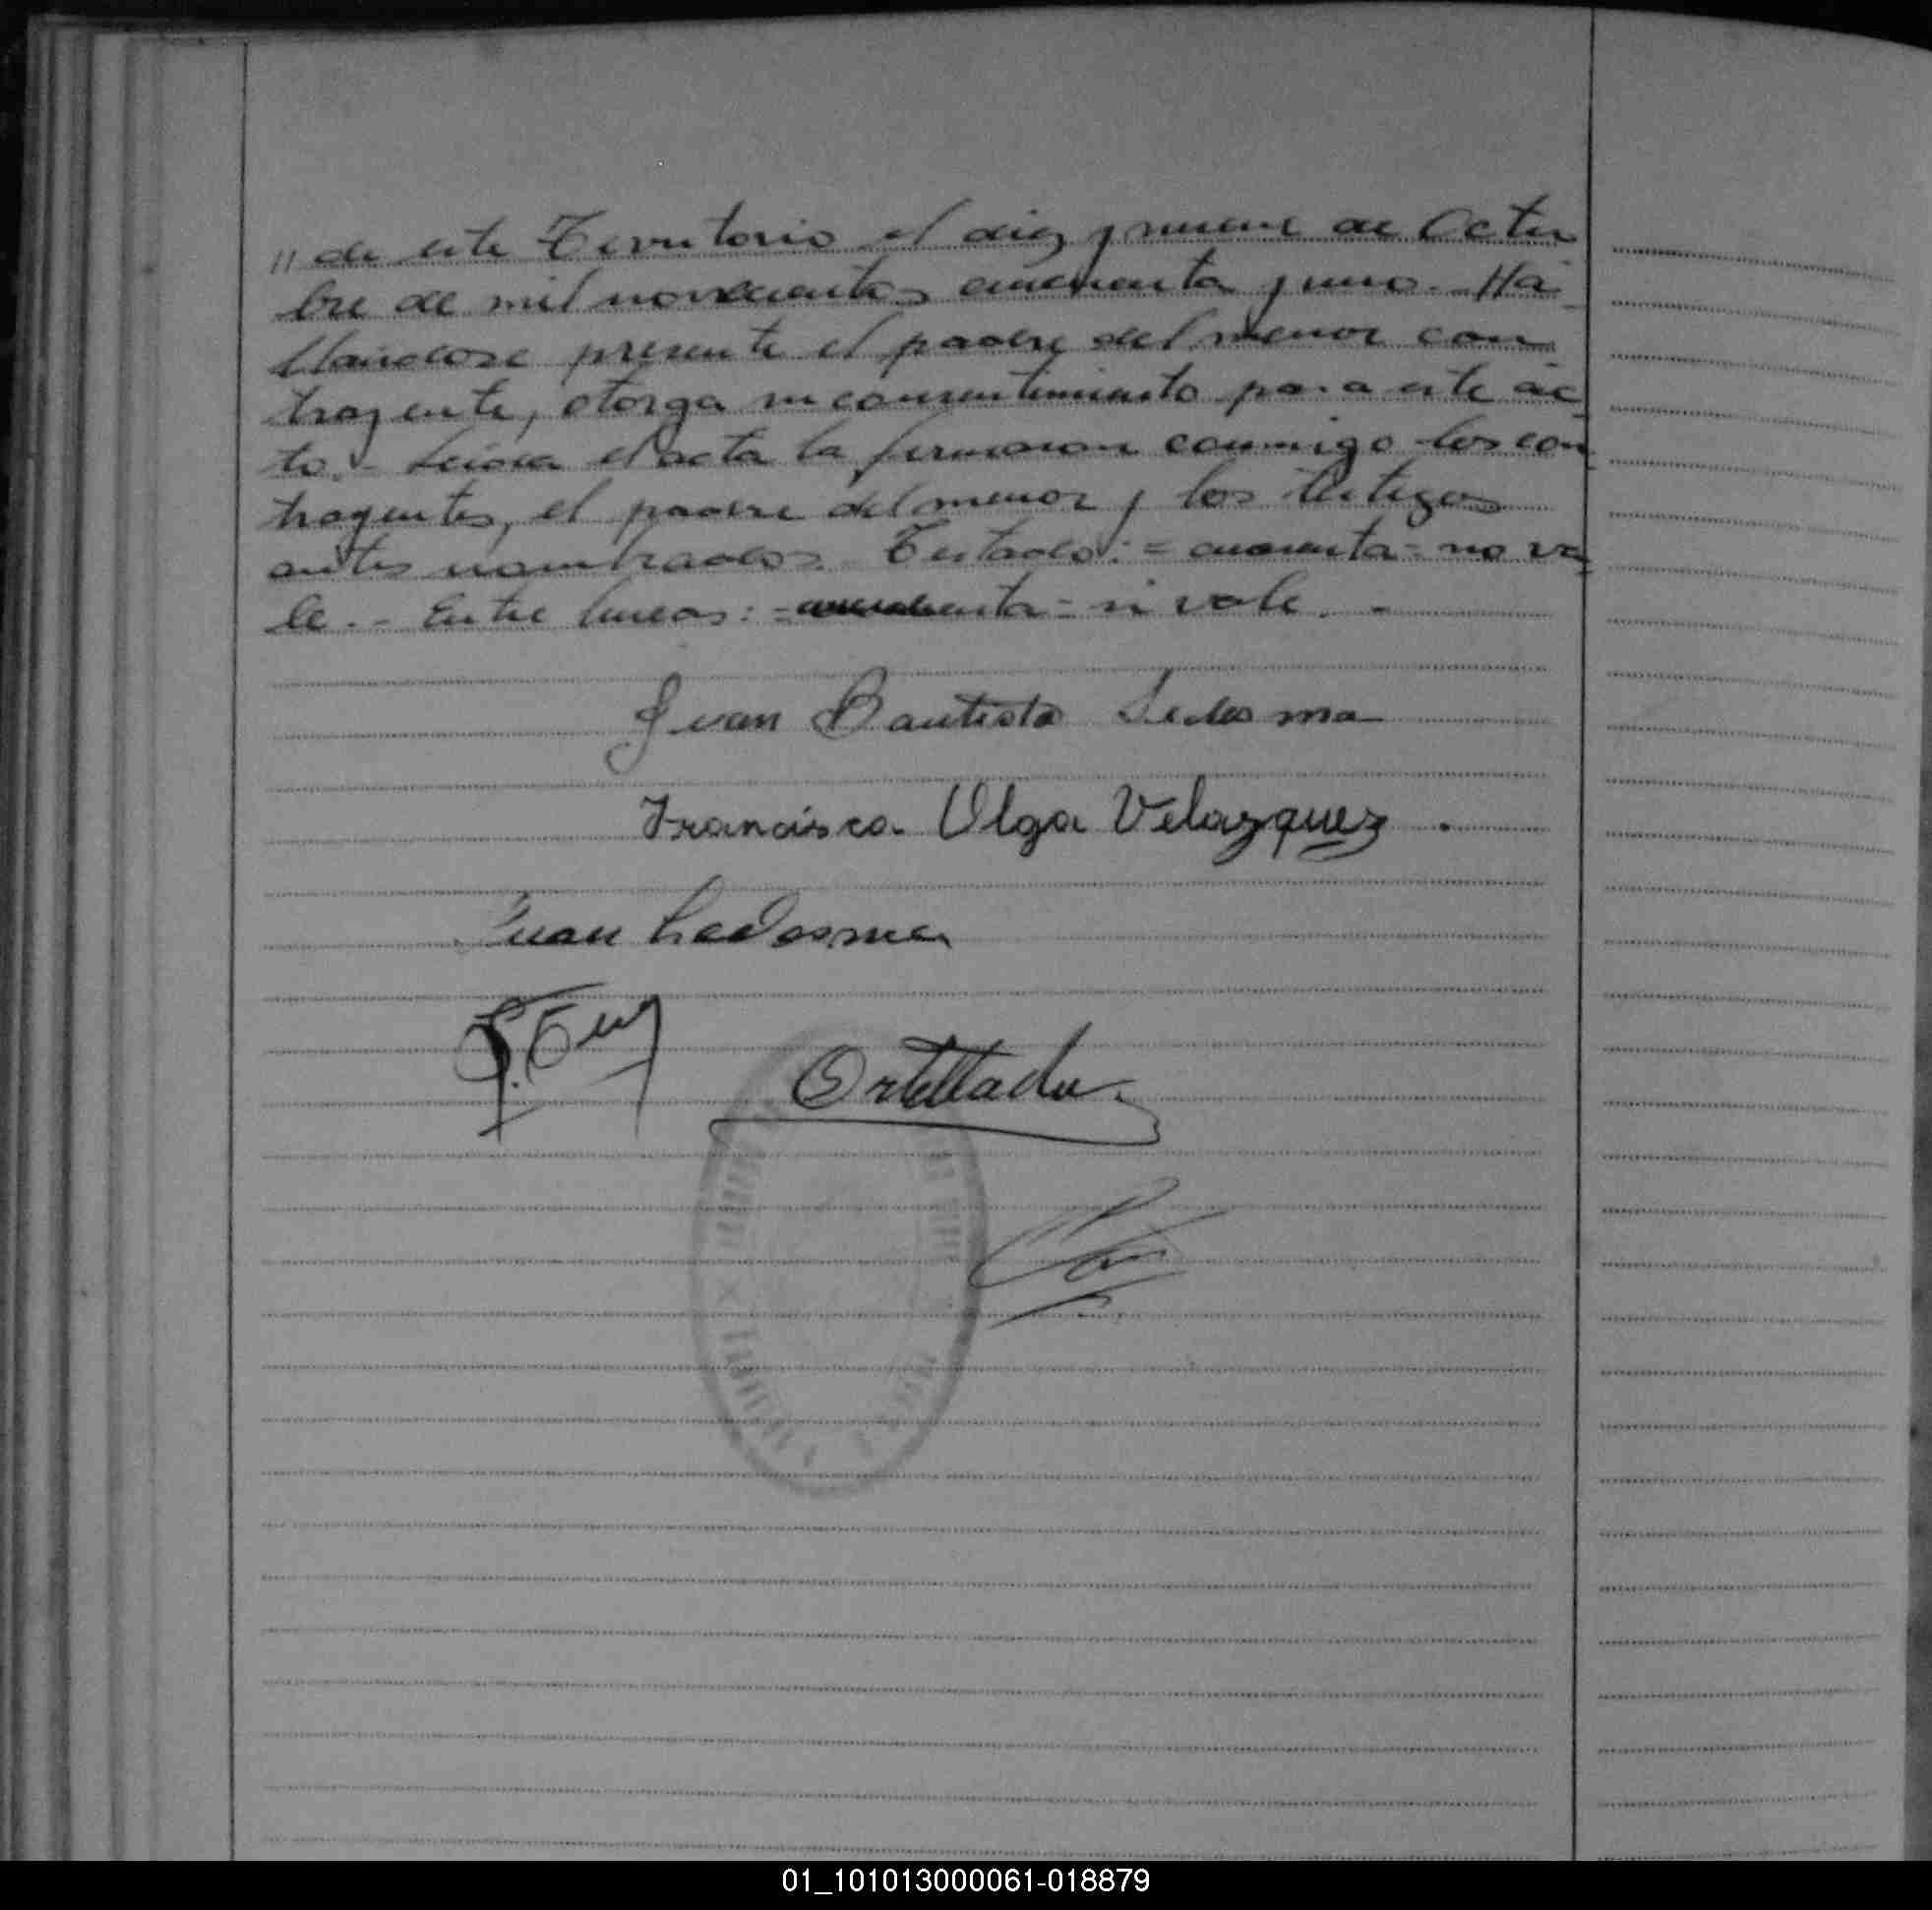 " de este Territorio el diez y nueve de Octu
bre de mil novecientos cincuenta y uno. - Há
llandose presente el padre del menor con
trayente, otorga su consentimiento para este ac
to. - Leída el acta la firmaron conmigo los con
trayentes, el padre del menor y los testigos
antes nombrados. Testado: = cuarenta = no va
le. - Entre líneas: = cincuenta = si vale. -
Juan Bautista Ledesma
Francisca Olga Velazquez .
Juan Ledesma
Ortellado
01_101013000061-018879